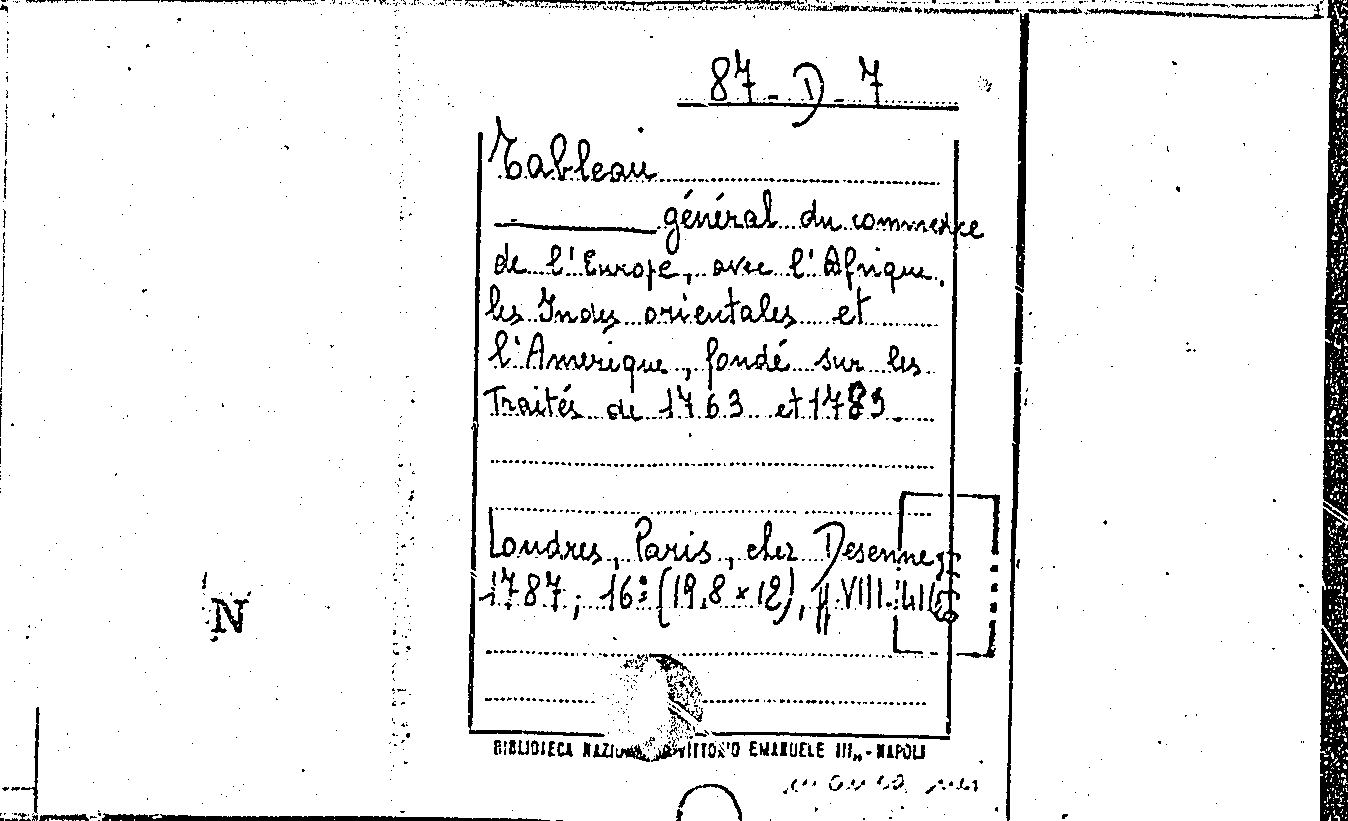 87-D-7
Tableau
général du commerce
de l'Europe, avec l'Afrique,
les Indes orientales et
l'Amerique, fondé sur les
Traités de 1763 et 1783.
Londres, Paris, chez Desenne,
1787, 16º (19,8 x 12), pp VIII.
BIBLIOTECA VITTORIO EMANUELE III„ - NAPOLI
N